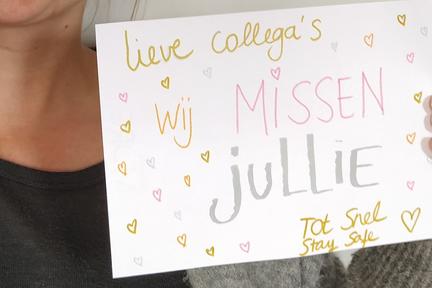 lieve collega's
wij MiSSEN
juLLiE
Tot Snel
Stay Safe